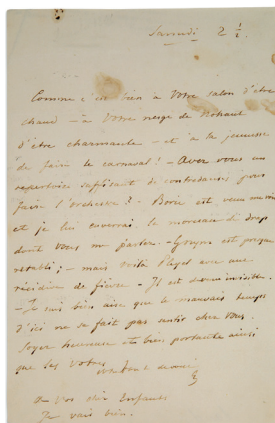 Samedi 2 ½.
Comme c'est bien à Votre salon d'être
chaud – à Votre neige de Nohant
d'être charmante – et à la jeunesse
de faire le carnaval! – Avez vous un
repertoire suffisant de contredanses pour
faire l'orchestre? – Borie est venu me voir
et je lui enverrai le morceau de drap
dont Vous me parlez. – Grzym est presque
retabli; – mais voilà Pleyel avec une
récidive de fièvre. – Il est devenu invisible.
– Je suis bien aise que le mauvais temps
d'ici ne se fait pas sentir chez Vous.
Soyez heureuse et bien portante ainsi
que les Vôtres
Votre tout devoué
C
A Vos chers Enfants
Je vais bien.